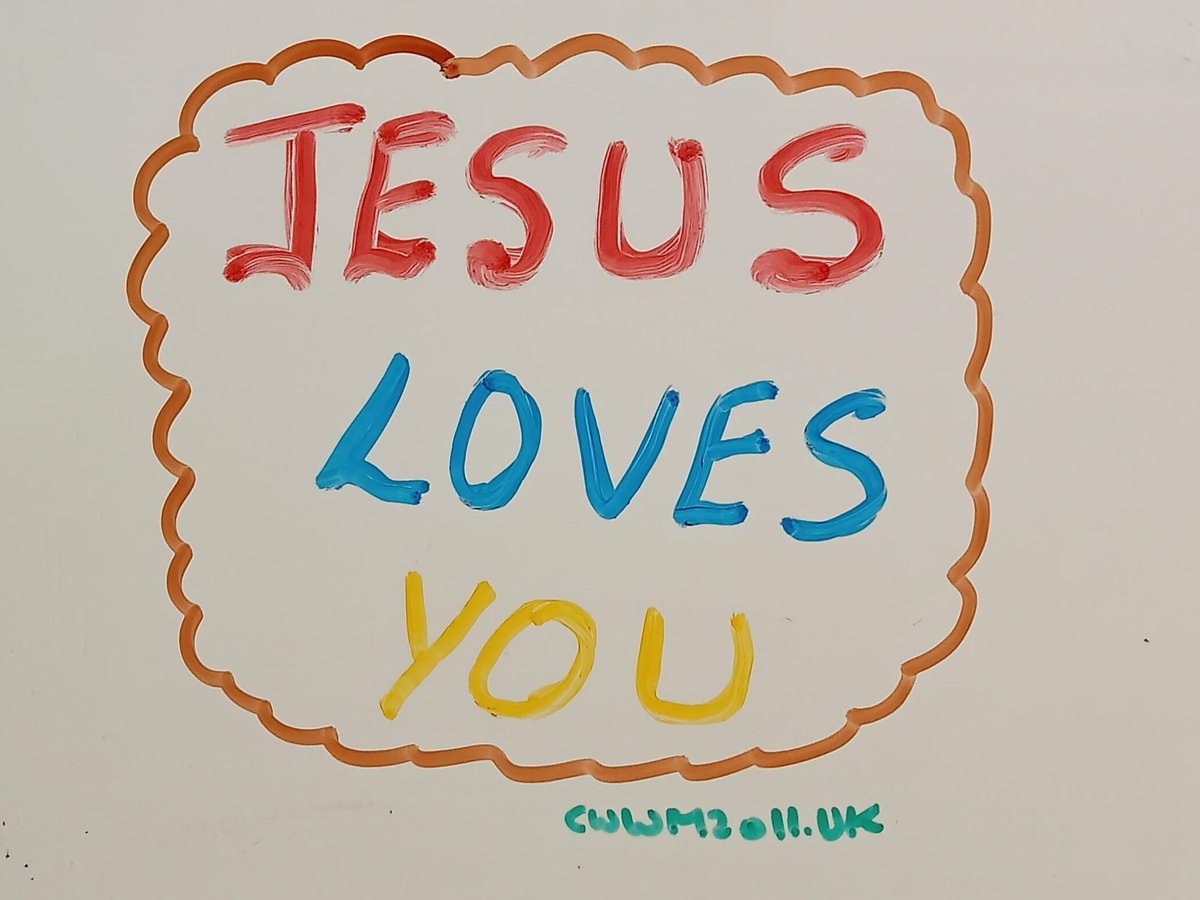 JESUS
LOVES
YOU
CWWM2011.UK